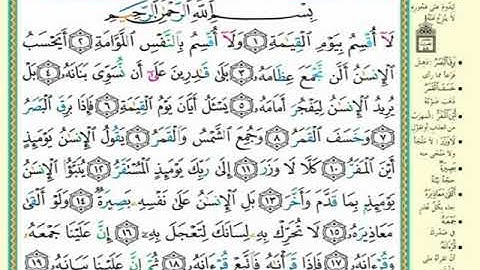 بِسْمِ ٱللَّهِ ٱلرَّحْمَٰنِ ٱلرَّحِيمِ
لَآ أُقْسِمُ بِيَوْمِ ٱلْقِيَٰمَةِ ١ وَلَآ أُقْسِمُ بِٱلنَّفْسِ ٱللَّوَّامَةِ ٢ أَيَحْسَبُ
ٱلْإِنسَٰنُ أَلَّن نَّجْمَعَ عِظَامَهُۥ ٣ بَلَىٰ قَٰدِرِينَ عَلَىٰٓ أَن نُّسَوِّىَ بَنَانَهُۥ ٤ بَلْ
يُرِيدُ ٱلْإِنسَٰنُ لِيَفْجُرَ أَمَامَهُۥ ٥ يَسْـَٔلُ أَيَّانَ يَوْمُ ٱلْقِيَٰمَةِ ٦ فَإِذَا بَرِقَ ٱلْبَصَرُ
٧ وَخَسَفَ ٱلْقَمَرُ ٨ وَجُمِعَ ٱلشَّمْسُ وَٱلْقَمَرُ ٩ يَقُولُ ٱلْإِنسَٰنُ يَوْمَئِذٍ
أَيْنَ ٱلْمَفَرُّ ١٠ كَلَّا لَا وَزَرَ ١١ إِلَىٰ رَبِّكَ يَوْمَئِذٍ ٱلْمُسْتَقَرُّ ١٢ يُنَبَّؤُا۟ ٱلْإِنسَٰنُ
يَوْمَئِذٍۭ بِمَا قَدَّمَ وَأَخَّرَ ١٣ بَلِ ٱلْإِنسَٰنُ عَلَىٰ نَفْسِهِۦ بَصِيرَةٌ ١٤ وَلَوْ أَلْقَىٰ
مَعَاذِيرَهُۥ ١٥ لَا تُحَرِّكْ بِهِۦ لِسَانَكَ لِتَعْجَلَ بِهِۦٓ ١٦ إِنَّ عَلَيْنَا جَمْعَهُۥ
وَقُرْءَانَهُۥ ١٧ فَإِذَا قَرَأْنَٰهُ فَٱتَّبِعْ قُرْءَانَهُۥ ١٨ ثُمَّ إِنَّ عَلَيْنَا بَيَانَهُۥ ١٩